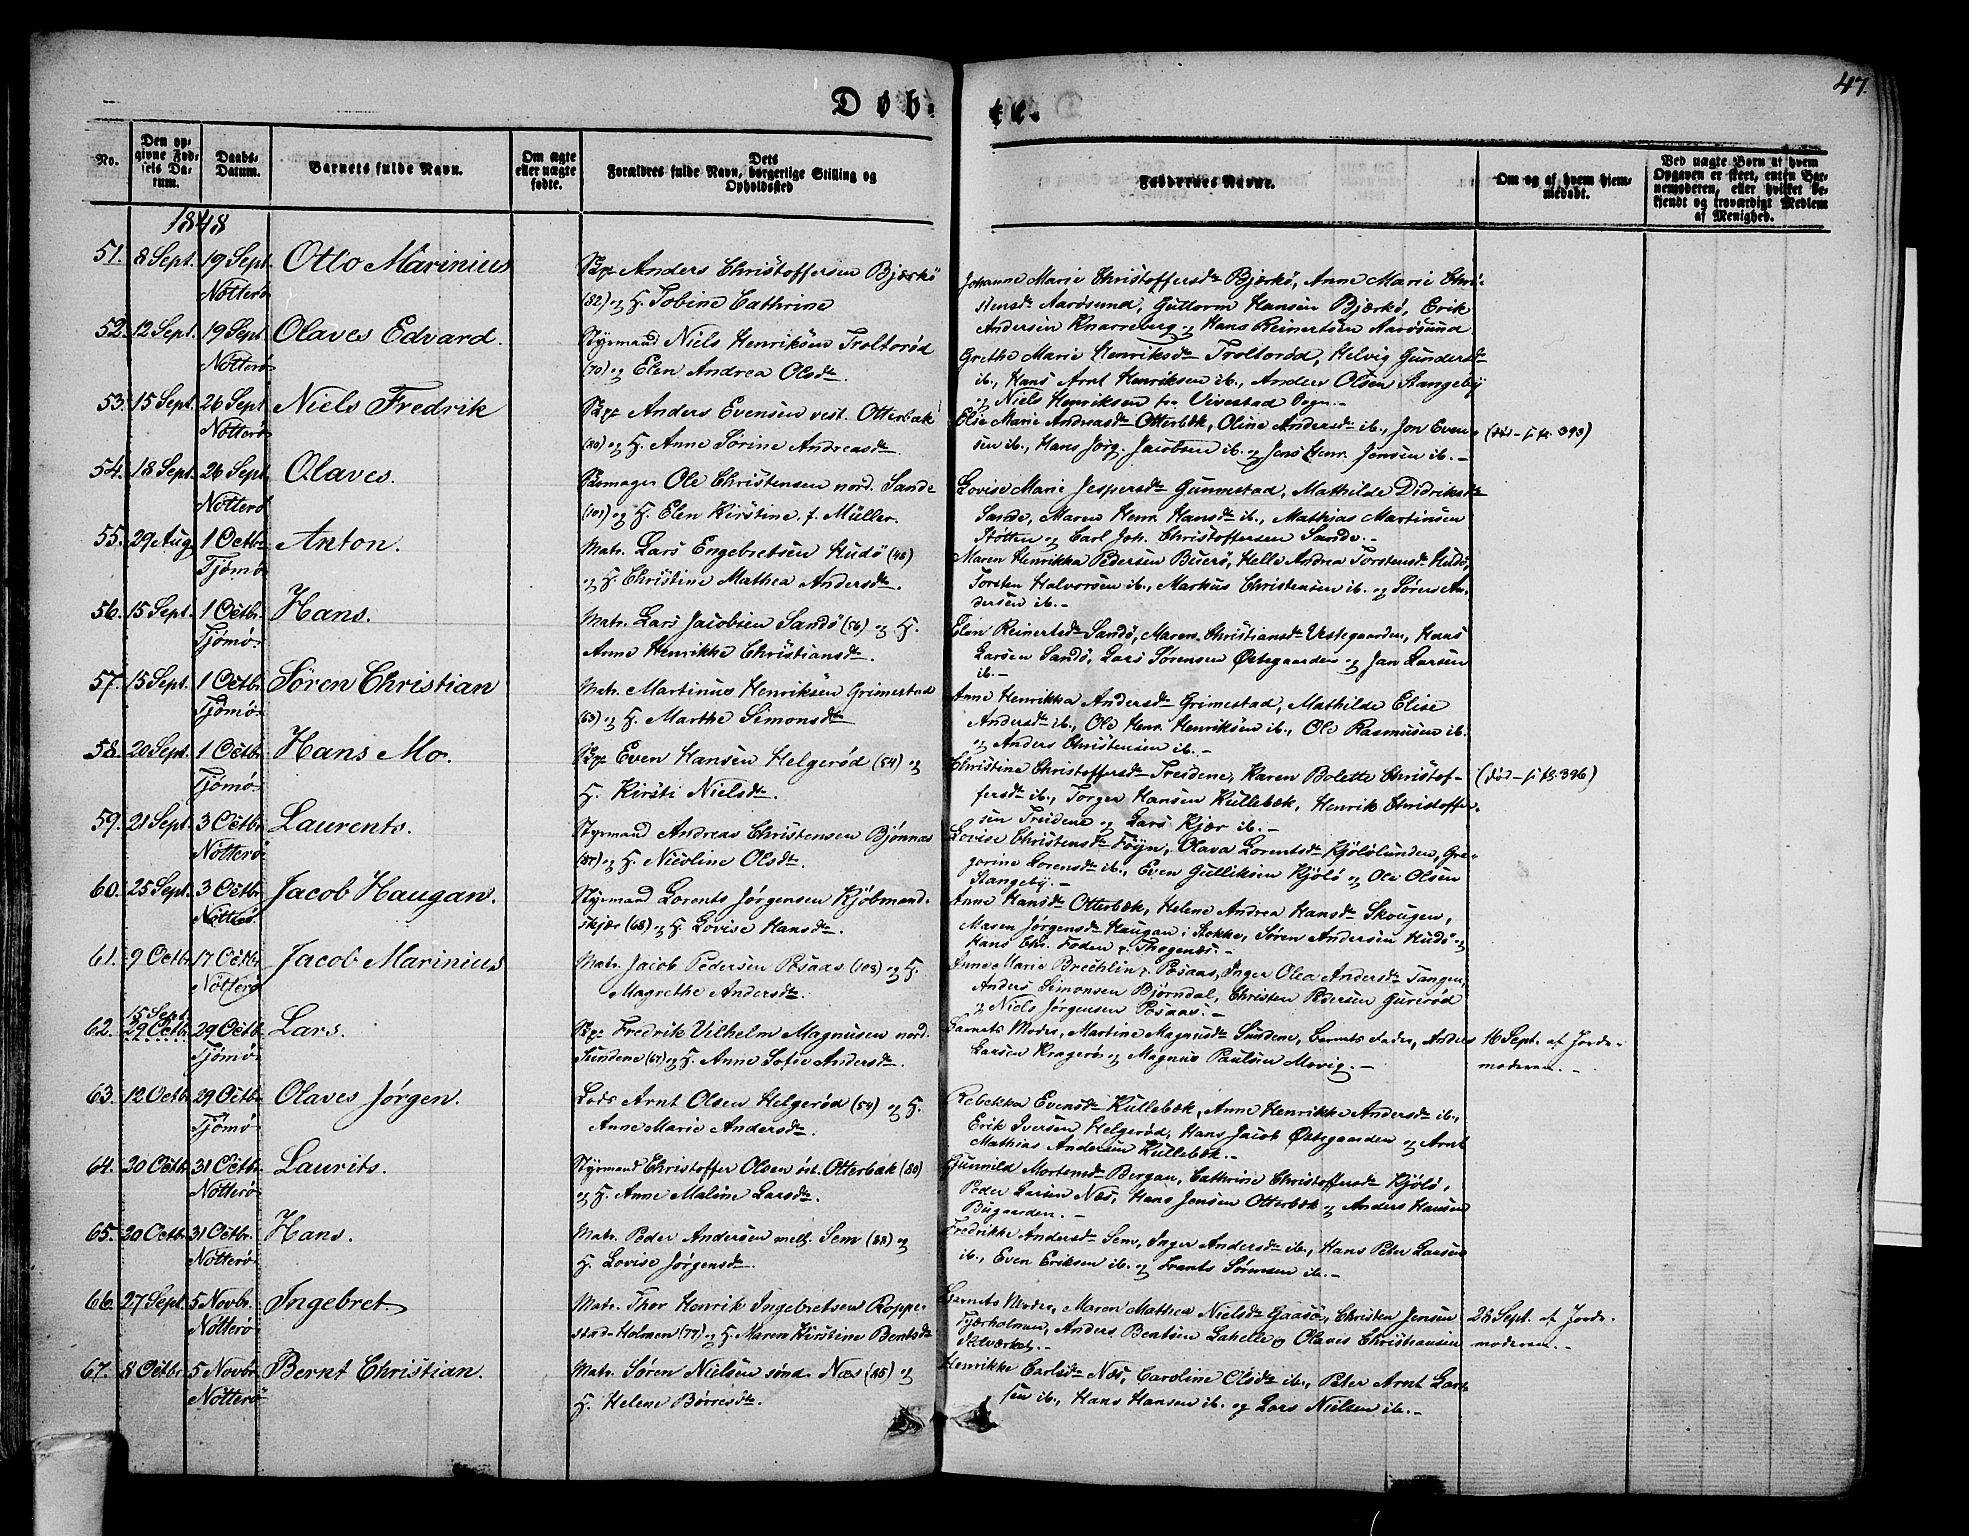 47.
Døb-
te.
No.
Den op-
givne Fød-
sels Da-
tum.
Daabs-
Datum.
Barnets fulde Navn.
Om ægte
eller uægte
fødte.
Dets
Forældres fulde Navn, borgerlige Stilling og
Opholdssted
Faddernes Navne.
Om og af hvem hjem-
medøbt.
Ved uægte Børn af hvem
Opgaven er skeet, enten Bar-
nemoderen, eller hvilket be-
kjendt og troværdigt Medlem
af Menighed.
1848
51. 8 Sept. 19 Sept. Otto Marinius Anders Christoffersen Bjærkö
Nötterö (82) og H. Tobine Cathrine
Johanne Marie Christoffersdtr Bjerkö, Anne Marie Chri-
stensdtr Aarösund, Guttorm Hansen Bjærkö, Erik
Andersen Knarreberg og Hans Reinertsen Aarösund
52. 12 Sept. 19 Sept. Olaves Edvard. Styrmand Niels Henriksen Troltoröd
Nötterö (70) og Elen Andrea Olsdtr.
Grethe Marie Henriksdtr Troltoröd, Helvig Gundersdtr
ib., Hans Arnt Henriksen ib., Anders Olsen Stangeby
og Niels Henriksen fra Vivestad Sogn.-
53. 15 Sept. 26 Sept. Niels Fredrik Anders Evensen vest. Otterbæk
Nötterö (80) og H. Anne Sörine Andreasdtr.
Elie Marie Andreasdtr Otterbæk, Oline Andersdtr ib., Jon Even-
sen ib., Hans Jörg. Jacobsen ib. og Jens Henr. Jensen ib.-
54. 18 Sept. 26 Sept. Olaves. Skomager Ole Christensen nord. Sande
Nötterö (101) og H. Elen Kirstine, f. Müller.
Lovise Marie Jespersdtr Gunnestad, Mathilde Didriksdtr
Sande, Maren Henr. Hansdtr ib., Mathias Martinsen
Støtten og Carl Joh. Christoffersen Sande.-
55. 29 Aug. 1 Octbr. Anton. Matr. Lars Engebretsen Hudö (48)
Tjömö og H. Christine Mathea Andersdtr.
Maren Henrikka Pedersen Buerö, Helle Andrea Torstensdtr Hudö,
Torsten Halvorsen ib., Markus Christensen ib. og Sören An-
dersen ib.-
56. 15 Sept. 1 Octbr. Hans. Matr. Lars Jacobsen Sandö (56) og H.
Tjömö. Anne Henrikke Christiansdtr.
Elen Reinertsdtr Sandö, Maren Christiansdtr Vestegaarden, Hans
Larsen Sandö, Lars Sörensen Østegaarden og Jan Larsen
ib.-
57. 15 Sept. 1 Octbr. Sören Christian Matr. Martinus Henriksen Grimestad
Tjömö. (63) og H. Marthe Simonsdtr
Anne Henrikka Andersdtr Grimestad, Mathilde Elise
Andersdtr ib., Ole Henr. Henriksen ib., Ole Rasmusen ib.
og Anders Christensen ib.-
58. 20 Sept. 1 Octbr. Hans Mo. Even Hansen Helgeröd (54) og
Tjömö. H. Kirsti Nielsdtr.
Christine Christoffersdtr Treidene, Karen Bolette Christof-
fersdtr ib., Torger Hansen Kullebæk, Henrik Christoffer-
sen Treidene og Lars Kjær ib.-
59. 21 Sept. 3 Octbr. Laurents. Styrmand Andreas Christensen Bjönnæs
Nötterö. (87) og H. Nicoline Olsdtr.
Lovise Christensdtr Föyn, Olava Lorentsdtr Kjölölunden, Gre-
gorine Lorensdtr ib., Even Gulliksen Kjölö og Ole Olsen
Stangeby.-
60. 25 Sept. 3 Octbr. Jacob Haugan. Styrmand Lorents Jörgensen Kjöbmand-
Nötterö. skjær (68) og H. Lovise Hansdtr.
Anne Hansdtr Otterbæk, Helene Andrea Hansdtr Skougen,
Maren Jörgensdtr Haugan i Stokke, Sören Andersen Hudö og
61. 9 Octbr. 17 Octbr. Jacob Marinius Matr. Jacob Pedersen Røsaas (103) og H.
Nötterö. Magrethe Andersdtr.
Anne Marie Brechlin Røsaas, Inger Olea Andersdtr Tangen,
Anders Simonsen Bjørndal, Christen Pedersen Guriröd
og Niels Jörgensen Røsaas.-
15 Sept.
62. 29 Octbr. 29 Octbr. Lars. Fredrik Vilhelm Magnusen nord.
Tjömö. Sundene (67) og H. Anne Sofie Andersdtr.
Barnets Moder, Martine Magnusdtr Sundene, Barnets Fader, Anders
Larsen Kragerö og Magnus Paulsen Movig.-
16 Sept. af Jorde-
moderen.-
63. 12 Octbr. 29 Octbr. Olaves Jörgen. Lods Arnt Olsen Helgeröd (54) og H.
Tjömö. Anne Marie Andersdtr.
Rebekka Evensdtr Kullebæk, Anne Henrikke Andersdtr ib.,
Erik Iversen Helgeröd, Hans Jacob Østegaarden og Arnt
Mathias Andersen Kullebæk.-
64. 20 Octbr. 31 Octbr. Laurits. Styrmand Christoffer Olsen öst. Otterbæk (80)
Nötterö. og H. Anne Maline Larsdtr.
Gunnild Mortensdtr Bergan, Cathrine Christoffersdtr Kjölö,
Peder Larsen Næs, Hans Jensen Otterbæk og Anders Hansen
Bugaarden.-
65. 20 Octbr. 31 Octbr. Hans. Matr. Peder Andersen mell. Sem (88) og
Nötterö. H. Lovise Jörgensdtr.
Fredrikke Andersdtr Sem, Inger Andersdtr ib., Hans Peter Larsen
ib., Even Eriksen ib. og Frants Sörensen ib.-
66. 27 Sept. 5 Novbr. Ingebret Matr. Thor Henrik Ingebretsen Roppe-
Nötterö. stad-Holmen (77) og H. Maren Kirstine Berntsdtr
Barnets Moder, Maren Mathea Nielsdtr Gaasö, Christen Jensen
Fjærholmen, Anders Bentsen Lahelle og Olavis Christiansen
28 Sept. af Jorde-
moderen.-
67. 8 Octbr. 5 Novbr. Bernt Christian. Matr. Sören Nielsen sönd. Næs (85) og
Nötterö H. Helene Börresdtr.
Henrikke Carlsdtr Næs, Caroline Olsdtr ib., Peter Arnt Lar-
sen ib., Hans Hansen ib. og Lars Nielsen ib.-